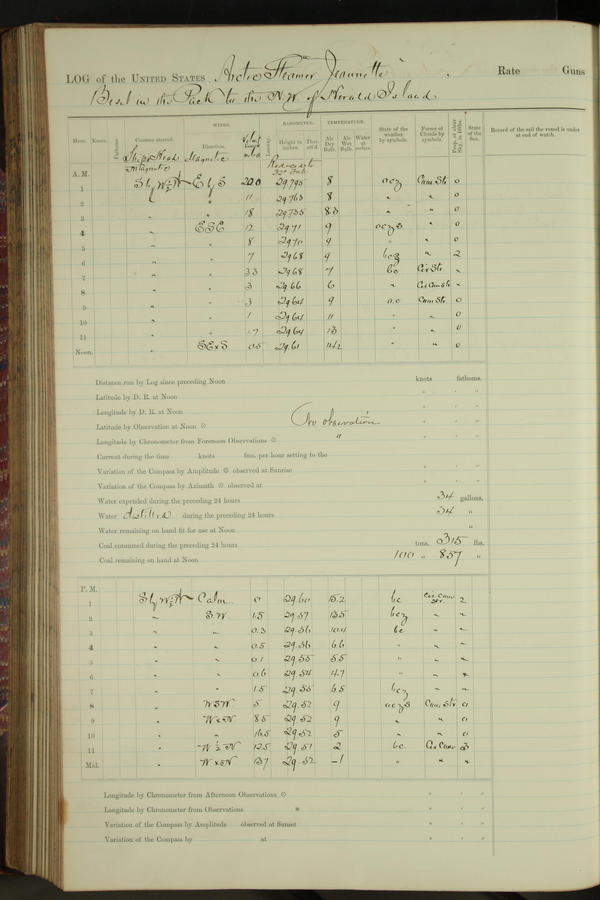 LOG of the UNITED STATES Arctic Steamer "Jeannette", Rate Guns
Beset in the Pack to the N.W. of Herald Island
Hour. Knots. Fathoms. Courses steered. WINDS. Direction. Leeway. BAROMETER. Height in inches. Ther. att'd. TEMPERATURE. Air Dry Bulb. Air Wet Bulb. Water at surface. State of the weather by symbols. Forms of Clouds by symbols. Prop. of clear Sky, in 10ths. State of the Sea. Record of the sail the vessel is under at end of watch.
Ship's Head Magnetic Magnetic Reduced to 32° Fah.
A. M.
1 E by S 20.0 29.795 8 ocz Cum. Str. 0
2 " " 11 29.763 8 " " 0
3 " " 18 29.735 8.3 " " 0
4 " ESE 12 29.71 9 oczs " 0
5 " " 8 29.70 9 " " 0
6 " " 7 29.68 9 bcz " 2
7 " " 3.3 29.68 7 bc Cir Str. "
8 " " 3 29.66 6 " Cir Cum Str. "
9 " " 3 29.64 9 o.c Cum Str. 0
10 " " 1 29.64 11 " " 0
11 " " 29.64 13 " " 0
Noon. " SExS 0.5 29.61 14.2 " " 0
Distance run by Log since preceding Noon knots fathoms.
Latitude by D. R. at Noon ° ' "
Longitude by D. R. at Noon ° ' "
Latitude by Observation at Noon ☉ No observation ° ' "
Longitude by Chronometer from Forenoon Observations ☉ " ° ' "
Current during the time knots fms. per hour setting to the
Variation of the Compass by Amplitude ☉ observed at Sunrise ° ' "
Variation of the Compass by Azimuth ☉ observed at ° ' "
Water expended during the preceding 24 hours 34 gallons.
Water distilled during the preceding 24 hours 34 "
Water remaining on hand fit for use at Noon "
Coal consumed during the preceding 24 hours tons. 315 lbs.
Coal remaining on hand at Noon 100 " 857 "
P. M.
1 Calm 0 29.60 15.2 bc Cir. Cum Str. 2
2 " S.W 1.5 29.57 13.5 bcz " "
3 " " 0.3 29.56 10.4 bc " "
4 " " 0.5 29.56 6.6 " " "
5 " " 0.1 29.55 5.5 " " "
6 " " 0.6 29.54 4.7 " " "
7 " " 1.5 29.55 6.5 bcz " "
8 " WSW 5 29.52 9 oczs Cum. Str 0
9 " WxN 8.5 29.52 9 " " 0
10 " " 16.5 29.52 5 " " 0
11 " W½N 12.5 29.51 2 bc Cir Cum 3
Mid. " WxN 13.7 29.52 -1 " " "
Longitude by Chronometer from Afternoon Observations ☉ ° ' "
Longitude by Chronometer from Observations * ° ' "
Variation of the Compass by Amplitude observed at Sunset ° ' "
Variation of the Compass by at ° ' "